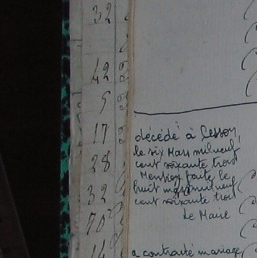 32
42
5
17
décédé à Cesson,
le six Mars mil neuf
28
cent soixante trois
Mention faite le
32
huit mars mil neuf
cent soixante trois
70
Le Maire
14
a contracté mariage